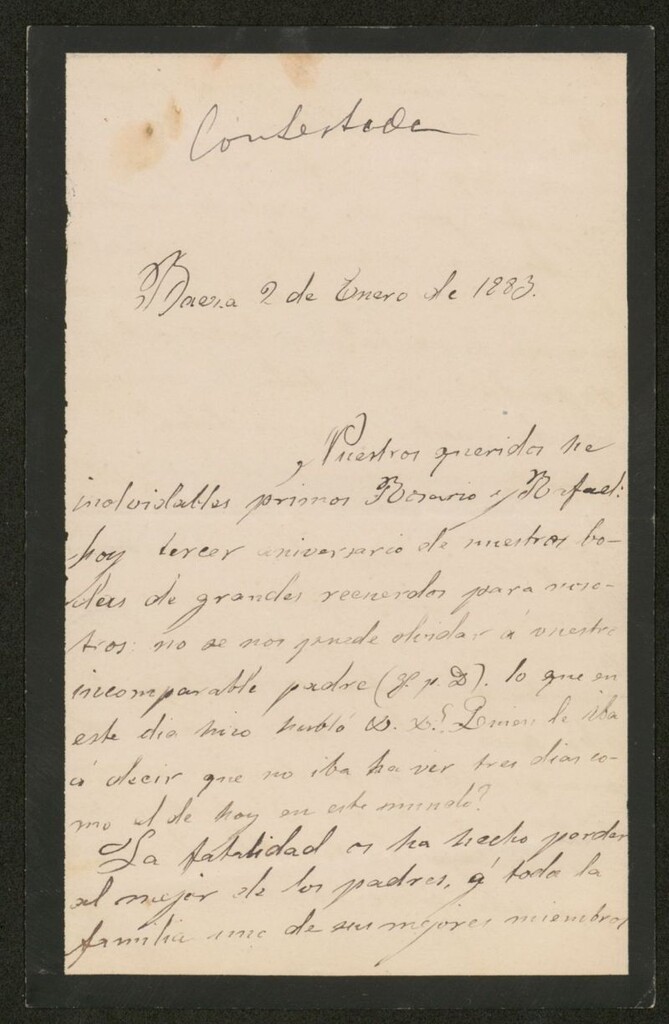 Contestada
Baeza 2 de Enero de 1883.
Nuestros queridos he
inolvidables primos Rosario y Rafael:
hoy tercer aniversario de nuestras bo-
das de grandes recuerdos para noso-
tros: no se nos puede olvidar á vuestro
incomparable padre (q. p. D). lo que en
este dia hizo habló &. &.! Quien le iba
á decir que no iba ha ver tres dias co-
mo el de hoy en este mundo?
La fatalidad os ha hecho perder
al mejor de los padres, á toda la
familia uno de sus mejores miembros